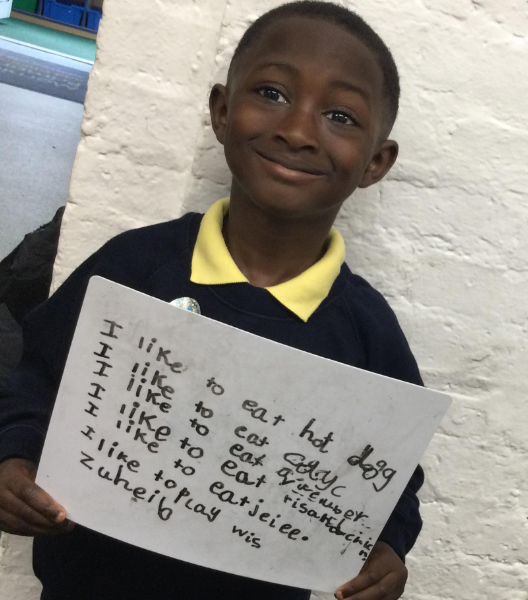 I like to eat hot dog
I like to eat
I like to eat
I like to eat
I like to eat jeiee.
I like to play wis
Zuheib